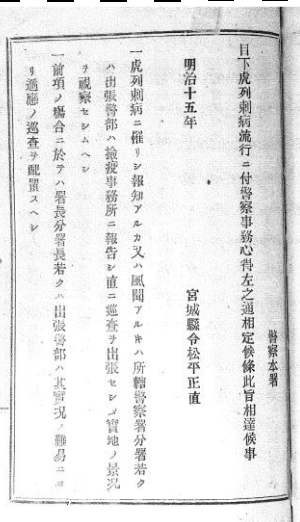 警察本署
目下虎列刺病流行ニ付警察事務心得左之通相定候條此旨相達候事
明治十五年
宮城縣令松平正直
一虎列刺病ニ罹リシ報知アルカ又ハ風聞アルキハ所轄警察署分署若ク
ハ出張警部ハ撿疫事務所ニ報告シ直ニ巡査ヲ出張セシメ實地ノ景況
ヲ視察セシムヘシ
一前項ノ塲合ニ於テハ署長分署長若クハ出張警部ハ其實況ノ難易ニヨ
リ適應ノ巡査ヲ配置スヘシ